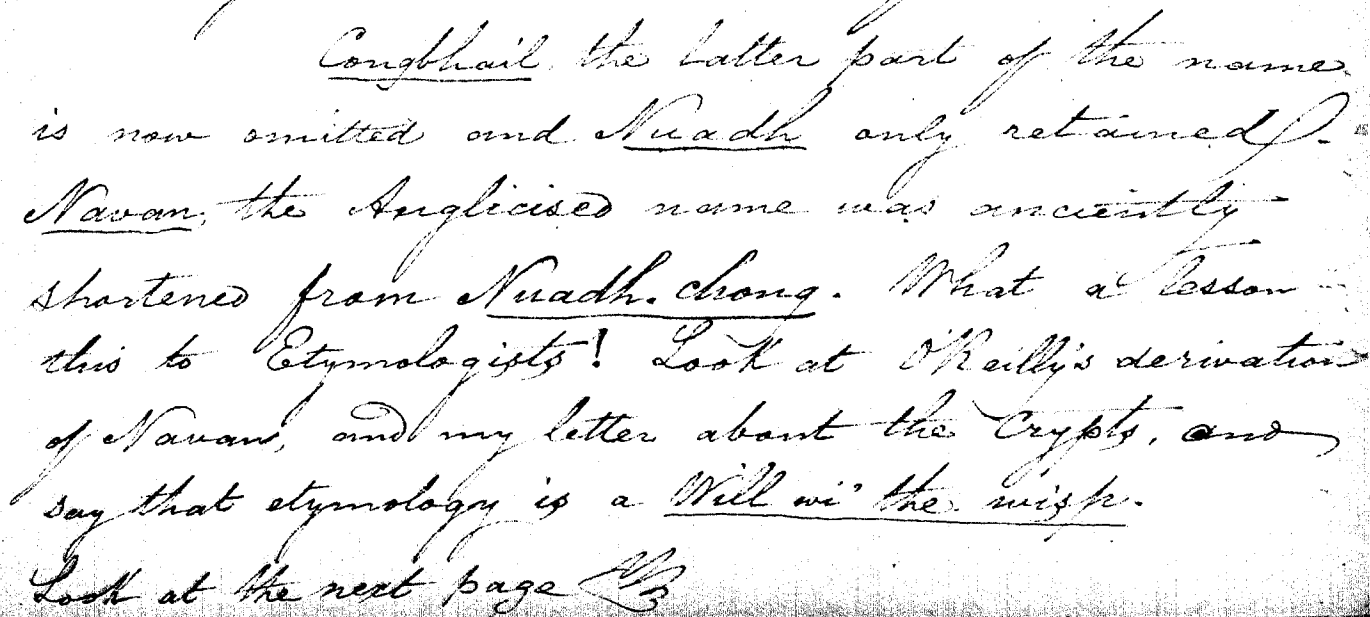 Congbhail the latter part of the name
is now omitted and Nuadh only retained.
Navan, the Anglicised name was anciently
shortened from Nuadh. chong. What a lesson
this to Etymologists! Look at O'Reilly's derivation
of Navan, and my letter about the Crypts, and
say that etymology is a Will wi' the wisp.
Look at the next page